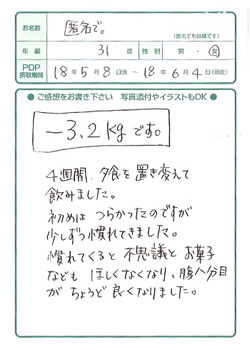 お名前 匿名で。
(匿名でも結構です)
年齢 31歳 性別 男・女
PDP摂取期間 18年5月8日頃～18年6月4日(現在)
● ご感想をお書き下さい 写真添付やイラストもOK ●
-3.2kgです。
4週間、夕食を置き変えて
飲みました。
初めは つらかったのですが
少しずつ慣れてきました。
慣れてくると 不思議と お菓子
なども ほしくなくなり、腹八分目
が ちょうど 良くなりました。